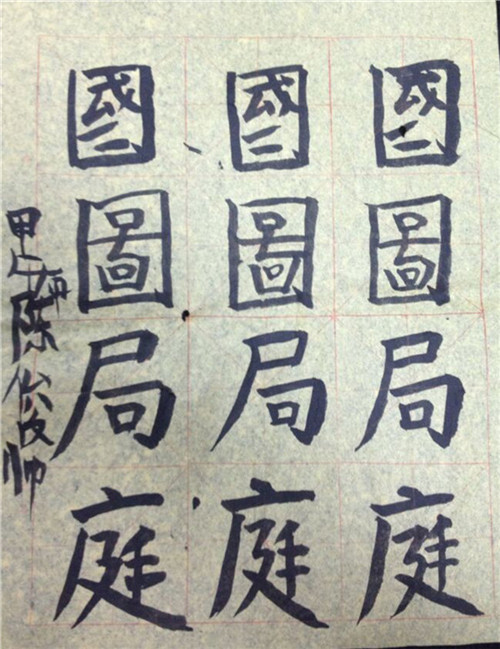 國圖局庭
國圖局庭
國圖局庭
甲午年陈俊帅